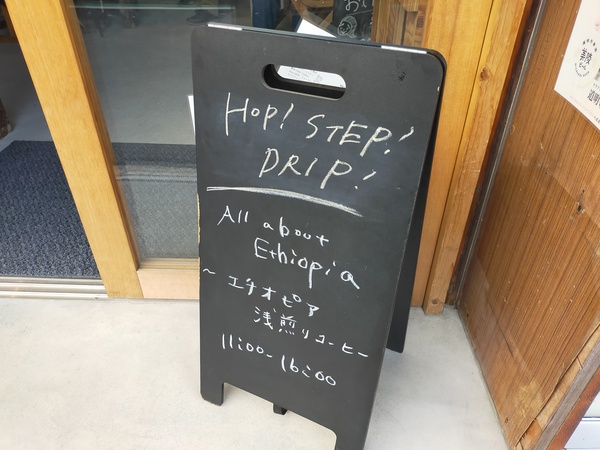 HOP! STEP!
DRIP!
All about
Ethiopia
~ エチオピア
浅煎りコーヒー
11:00-16:00